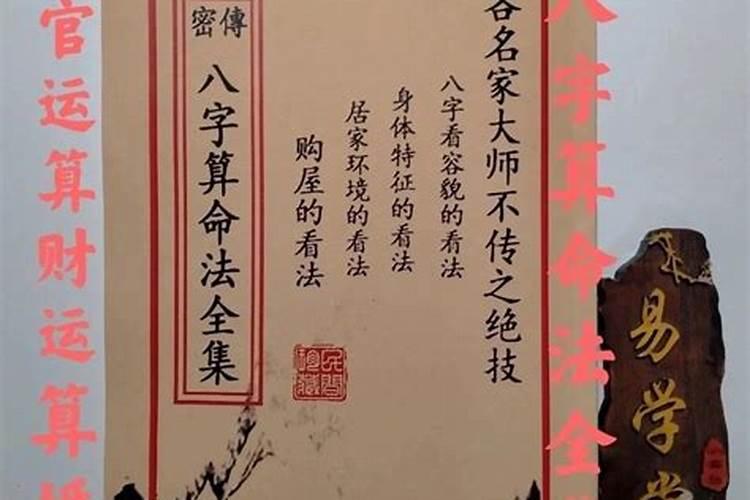 易学堂
八字算命法全
各名家大师不传之绝技
八字看容貌的看法
身体特征的看法
居家环境的看法
购屋的看法
密傳
八字算命法全集
官运算财运算